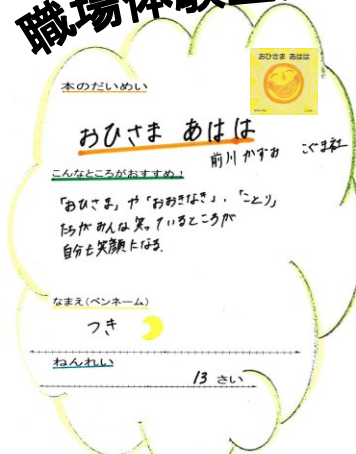 職場体験
おひさま あはは
本のだいめい
おひさま あはは
前川かずお こぐま社
こんなところがおすすめ!
「おひさま」や「おおきなき」、「ことり」
たちがみんな笑っているところが
自分も笑顔になる。
なまえ(ペンネーム)
つき
ねんれい
13 さい